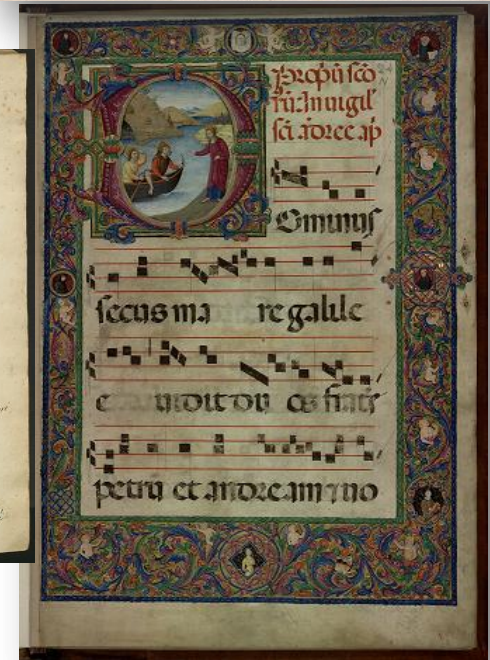 Propriũ sco
rũ: In uigil'
sci ãdree ap
Dominus
secus ma re galile
e uidit du os fratr
petrũ et andream